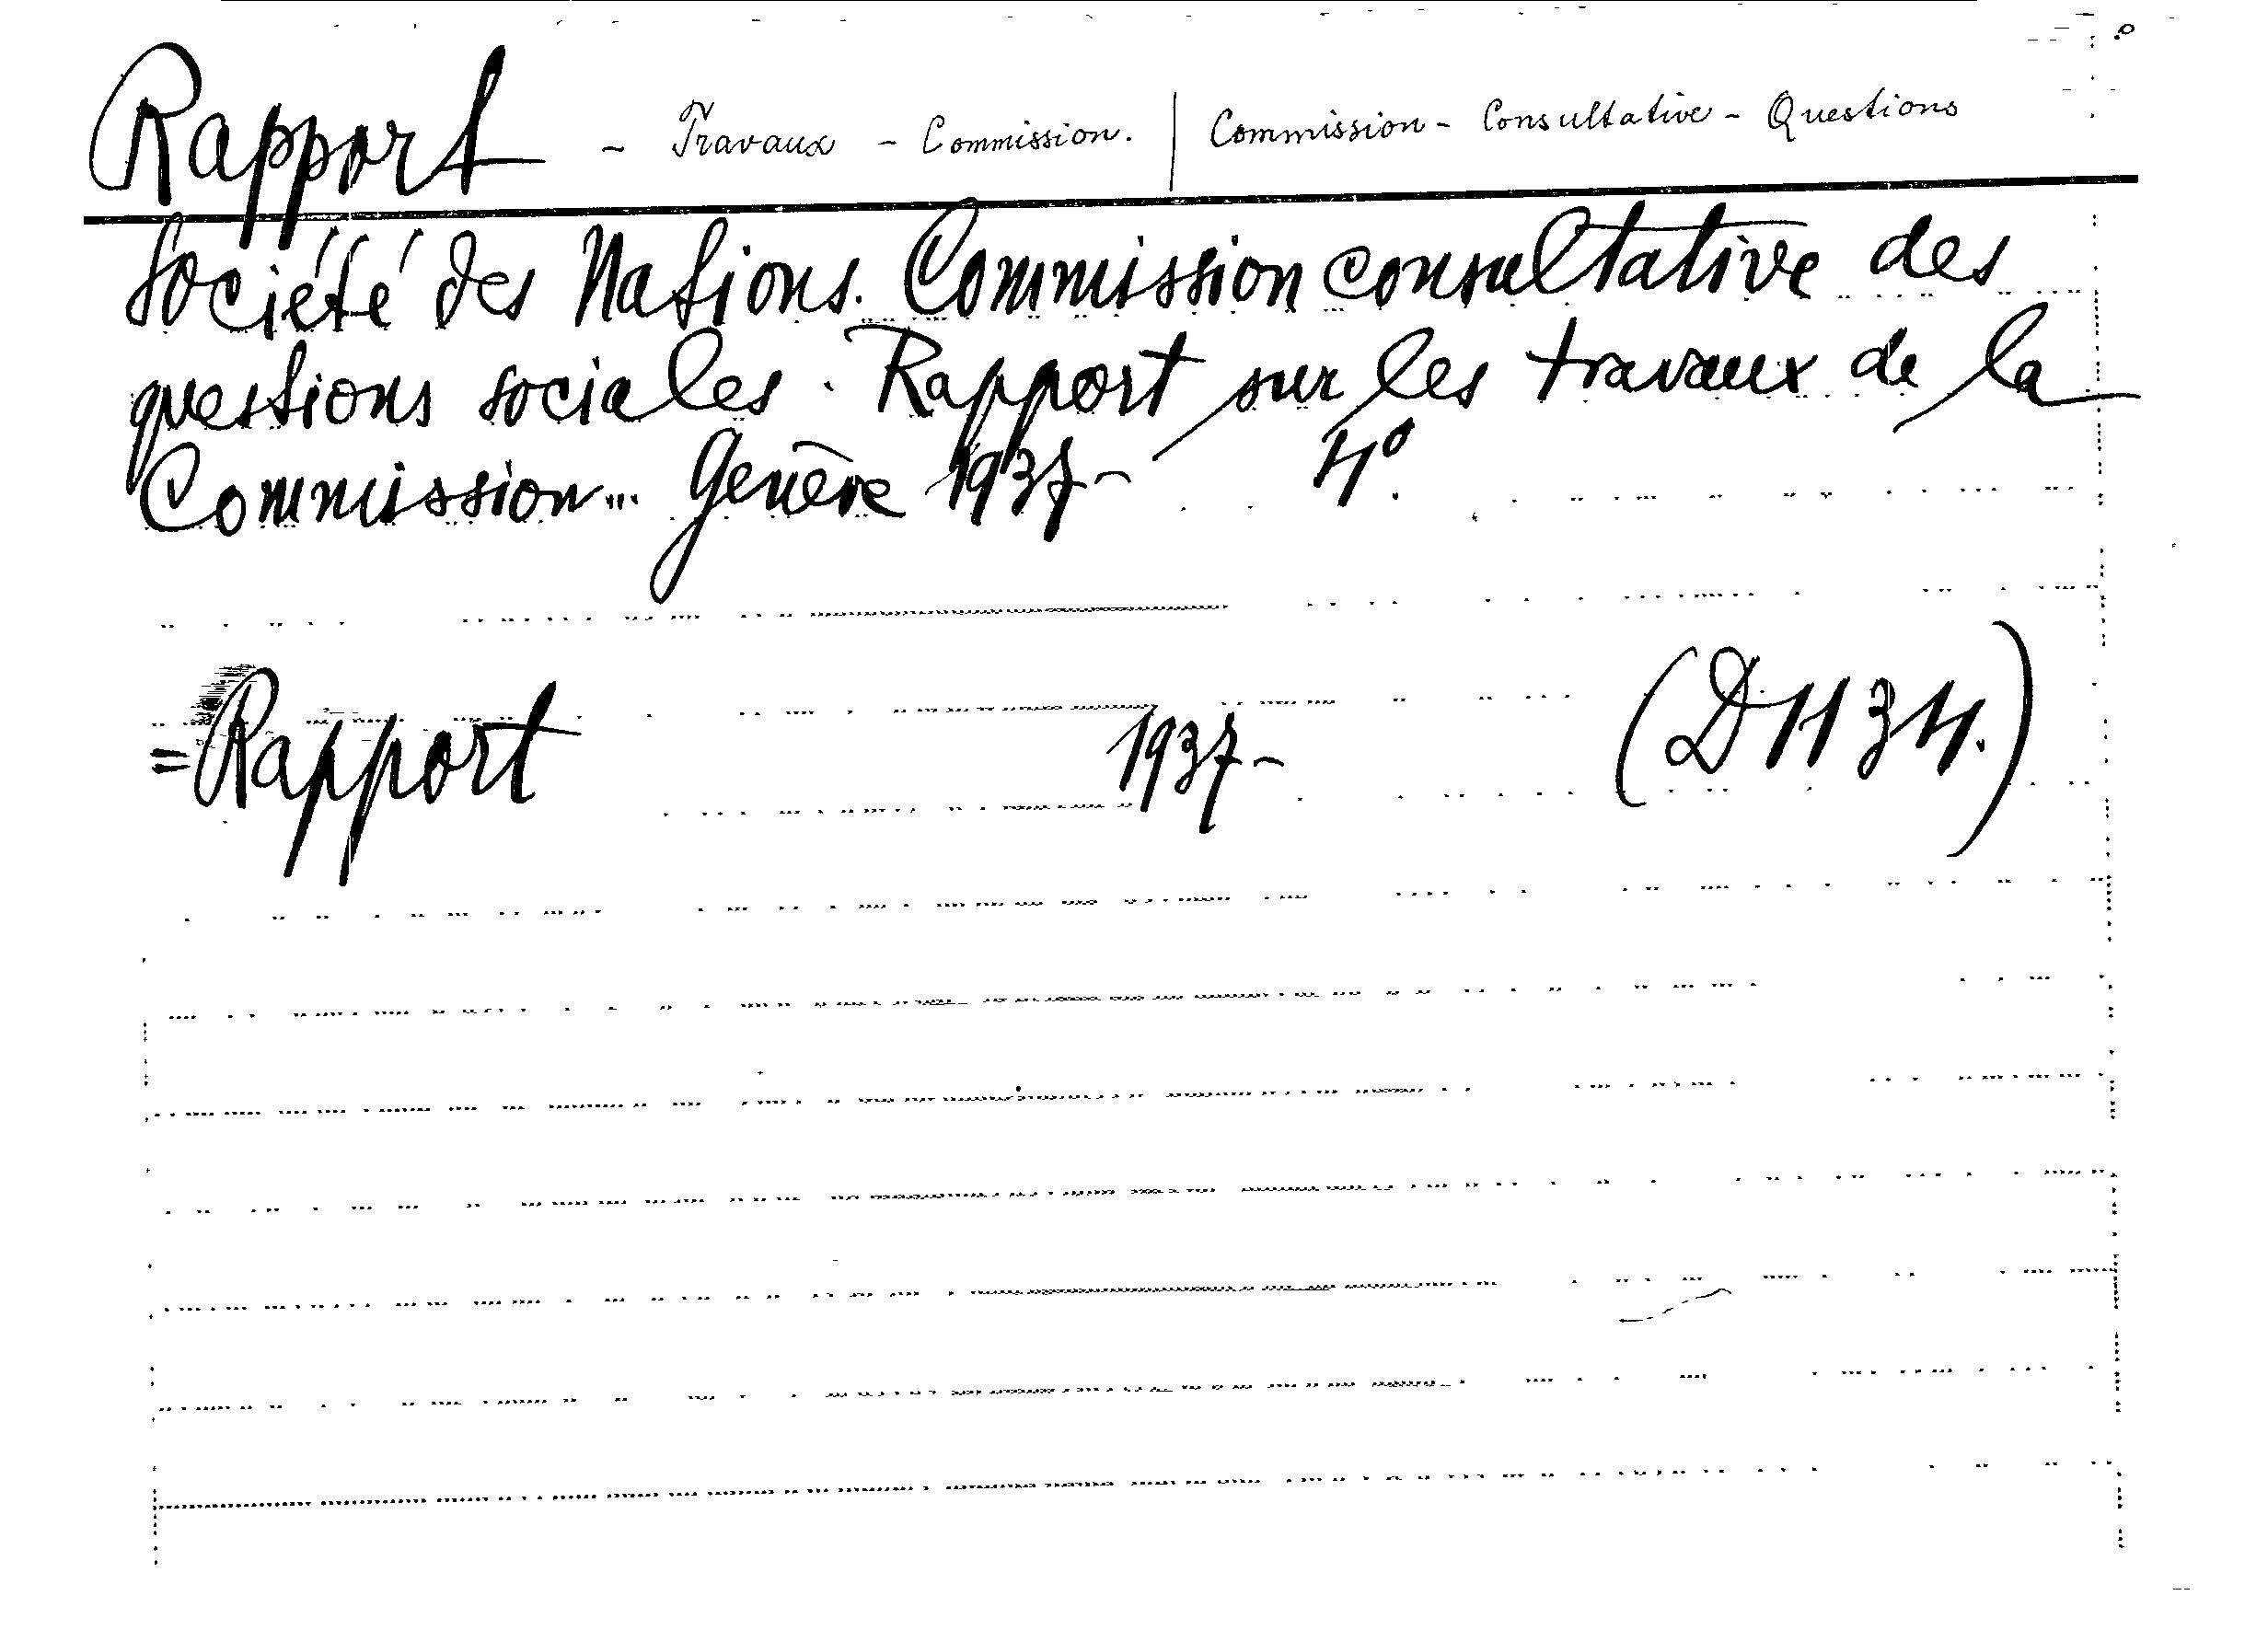 Rapport - Travaux - Commission. | Commission - Consultative - Questions
Société des Nations. Commission consultative des
questions sociales. Rapport sur les travaux de la
Commission... Genève 1937- 4º.
=Rapport 1937- (D 1134.)